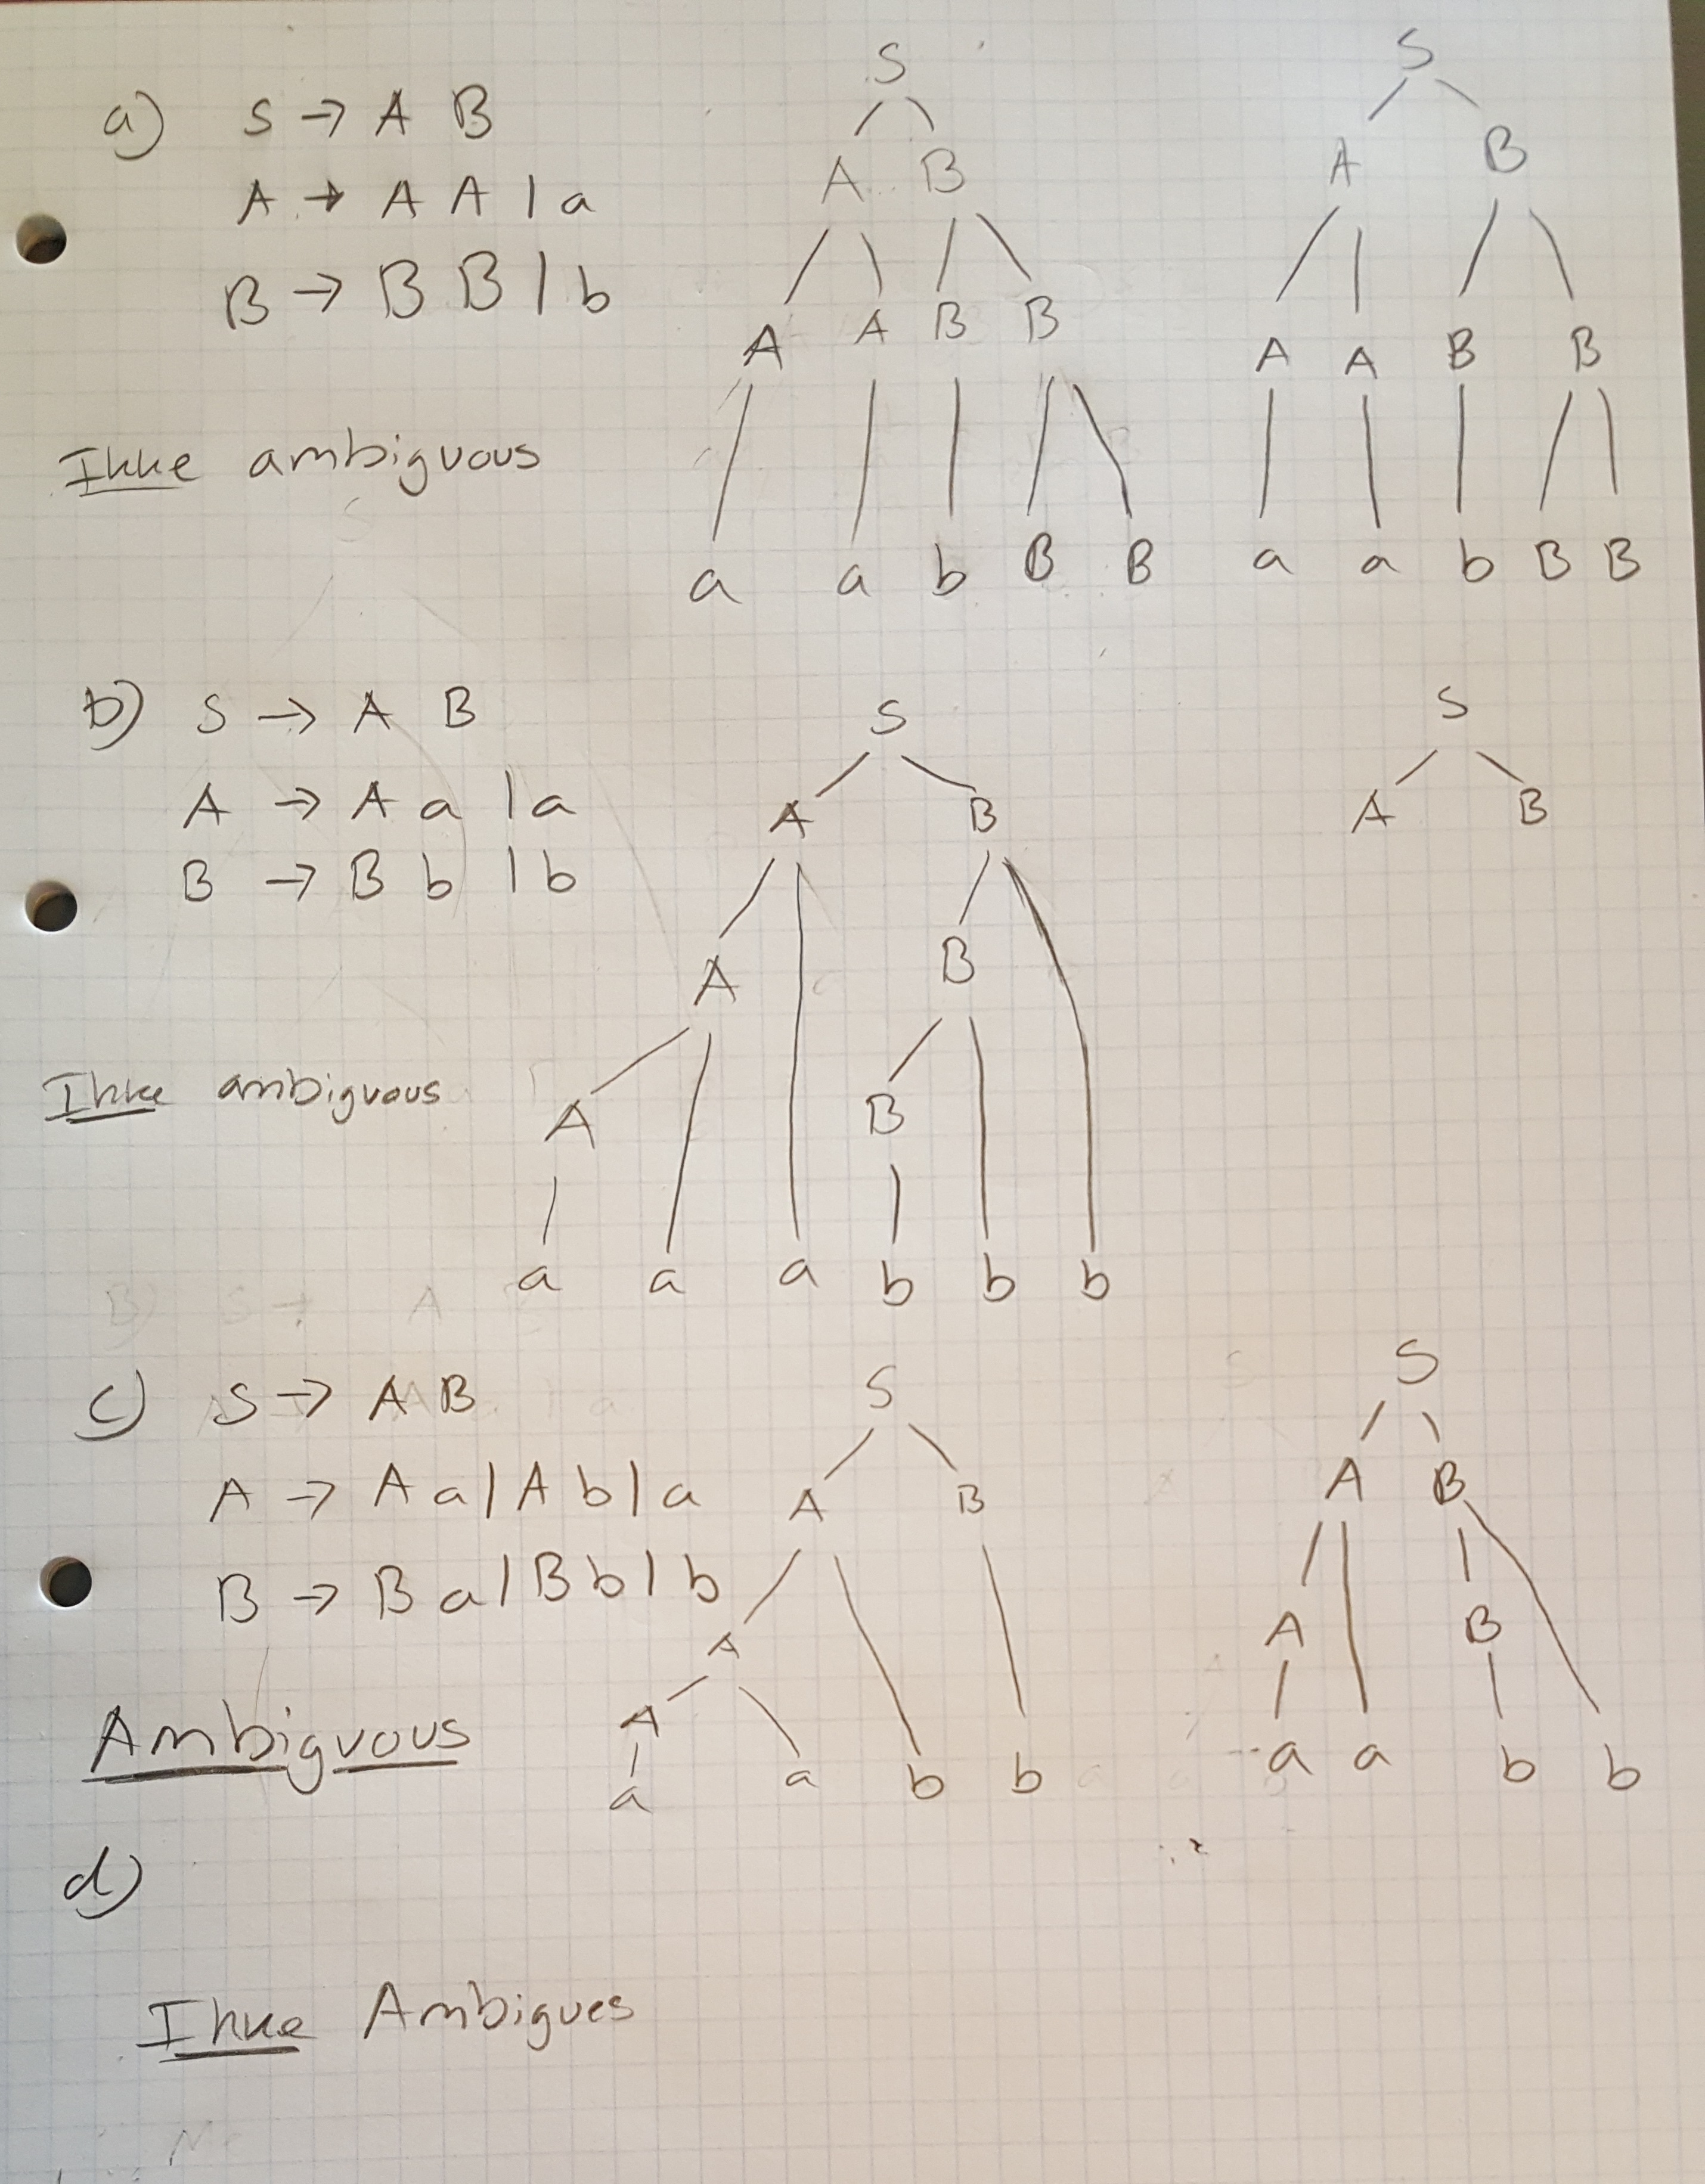 a) S → A B
A → A A | a
B → B B | b
Ikke ambiguous
S
A B
A A B B
a a b B B
S
A B
A A B B
a a b B B
b) S → A B
A → A a | a
B → B b | b
Ikke ambiguous
S
A B
A B
A B
a a a b b b
S
A B
c) S → A B
A → A a | A b | a
B → B a | B b | b
Ambiguous
S
A B
A
A
a a b b
S
A B
A B
a a b b
d)
Ikke Ambigues